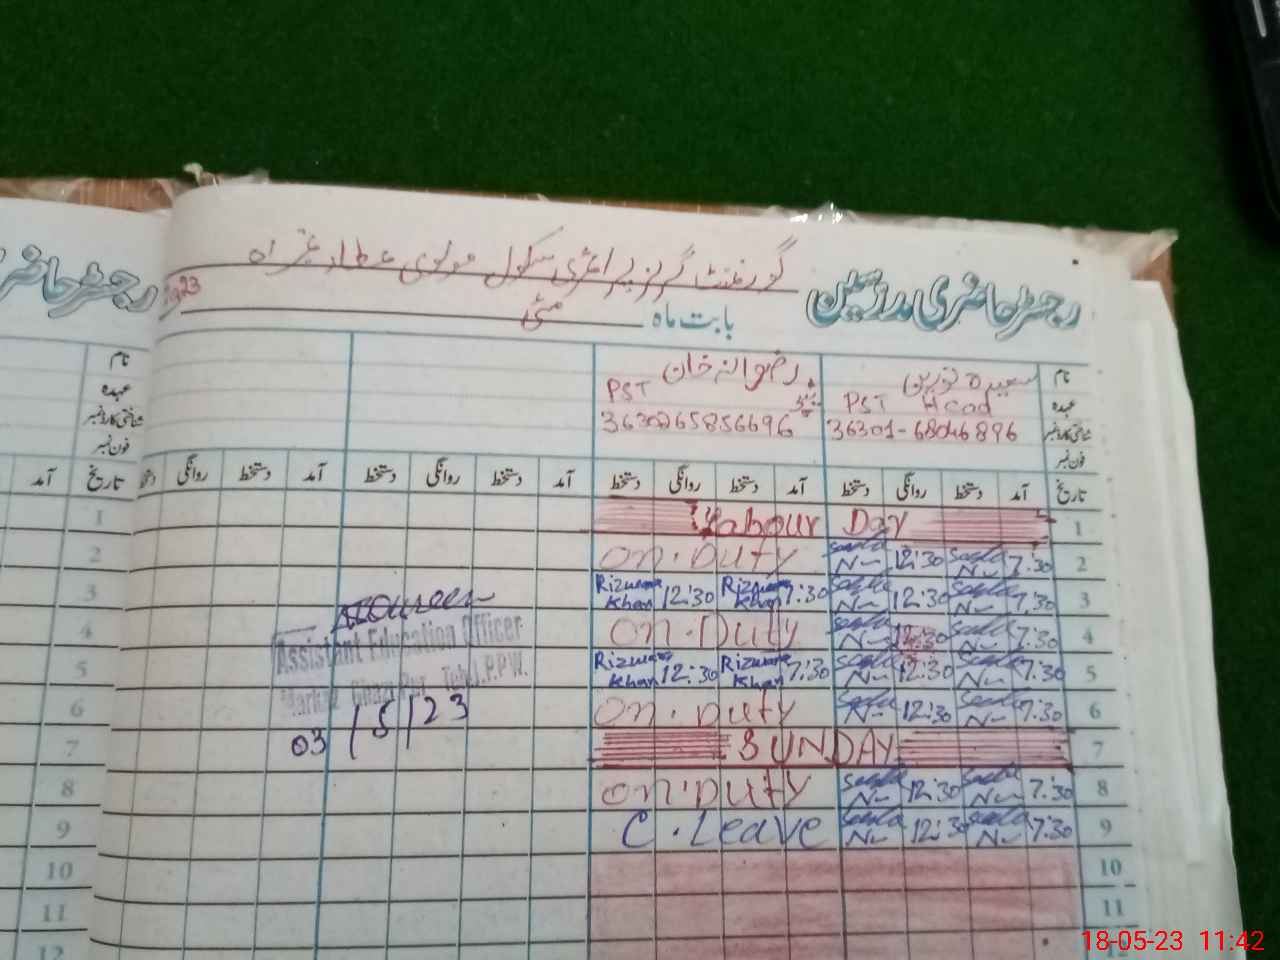 گورنمنٹ گرلز پرائمری سکول مولوی عطاء
رجسٹر حاضری مدرسین
بابت ماہ مئی
23
رجسٹر حاضری
نام
سعیدہ نورین
رضوانہ خان
نام
عہدہ
PST Head
PST
عہدہ
شناختی کارڈ نمبر
36301-68046896
3630265856696
شناختی کارڈ نمبر
فون نمبر
فون نمبر
تاریخ آمد دستخط روانگی دستخط آمد دستخط روانگی دستخط آمد دستخط روانگی دستخط آمد دستخط روانگی
تاریخ آمد
1 Labour Day 1
2 7:30 12:30 On.Duty 2
3 7:30 12:30 Rizwana Khan 7:30 Rizwana Khan 12:30 3
4 7:30 12:30 On.Duty 4
5 7:30 12:30 Rizwana Khan 7:30 Rizwana Khan 12:30 5
6 7:30 12:30 On.Duty 6
7 SUNDAY 7
8 7:30 12:30 On.Duty 8
9 7:30 12:30 C.Leave 9
10 10
11 11
12 12
Assistant Education Officer
Markaz Ghazi Pur Teh J.P.P.W.
03/5/23
18-05-23 11:42